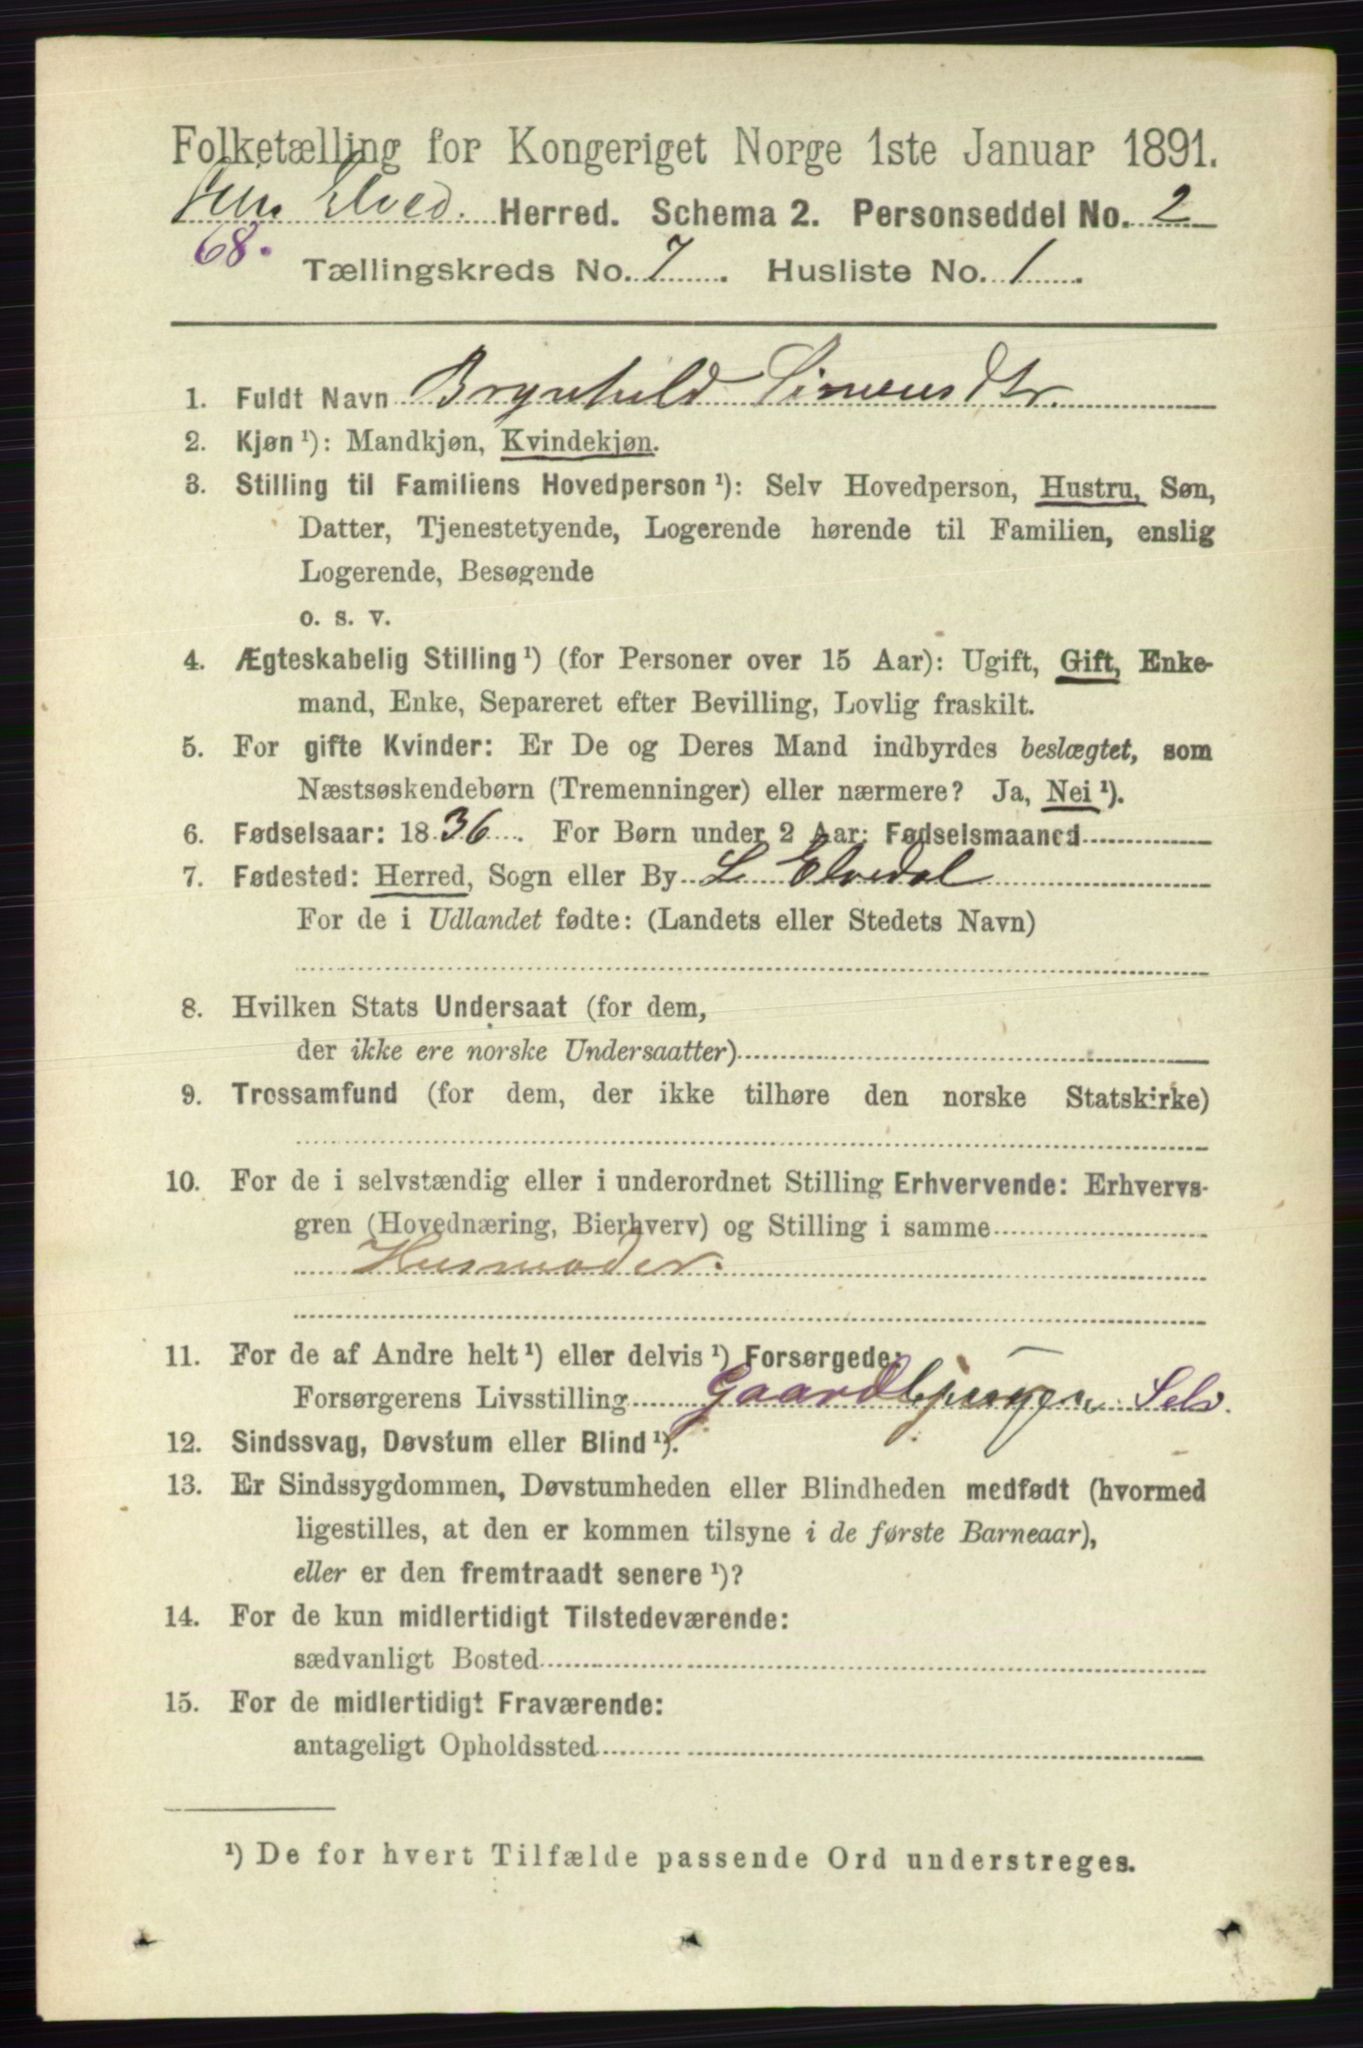 Folketælling for Kongeriget Norge 1ste Januar 1891.
Elved. Herred. Schema 2. Personseddel No. 2
68.
Tællingskreds No. 7. Husliste No. 1.
1. Fuldt Navn Brynhild Simensdtr.
2. Kjøn ¹): Mandkjøn, Kvindekjøn.
3. Stilling til Familiens Hovedperson ¹): Selv Hovedperson, Hustru, Søn,
Datter, Tjenestetyende, Logerende hørende til Familien, enslig
Logerende, Besøgende
o. s. v.
4. Ægteskabelig Stilling ¹) (for Personer over 15 Aar): Ugift, Gift, Enke-
mand, Enke, Separeret efter Bevilling, Lovlig fraskilt.
5. For gifte Kvinder: Er De og Deres Mand indbyrdes beslægtet, som
Næstsøskendebørn (Tremenninger) eller nærmere? Ja, Nei ¹).
6. Fødselsaar: 1836. For Børn under 2 Aar: Fødselsmaaned
7. Fødested: Herred, Sogn eller By L Elvedal
For de i Udlandet fødte: (Landets eller Stedets Navn)
8. Hvilken Stats Undersaat (for dem,
der ikke ere norske Undersaatter)
9. Trossamfund (for dem, der ikke tilhøre den norske Statskirke)
10. For de i selvstændig eller i underordnet Stilling Erhvervende: Erhvervs-
gren (Hovednæring, Bierhverv) og Stilling i samme
Husmoder.
11. For de af Andre helt ¹) eller delvis ¹) Forsørgede:
Forsørgerens Livsstilling Gaardbruger Selv.
12. Sindssvag, Døvstum eller Blind ¹).
13. Er Sindssygdommen, Døvstumheden eller Blindheden medfødt (hvormed
ligestilles, at den er kommen tilsyne i de første Barneaar),
eller er den fremtraadt senere ¹)?
14. For de kun midlertidigt Tilstedeværende:
sædvanligt Bosted
15. For de midlertidigt Fraværende:
antageligt Opholdssted
¹) De for hvert Tilfælde passende Ord understreges.